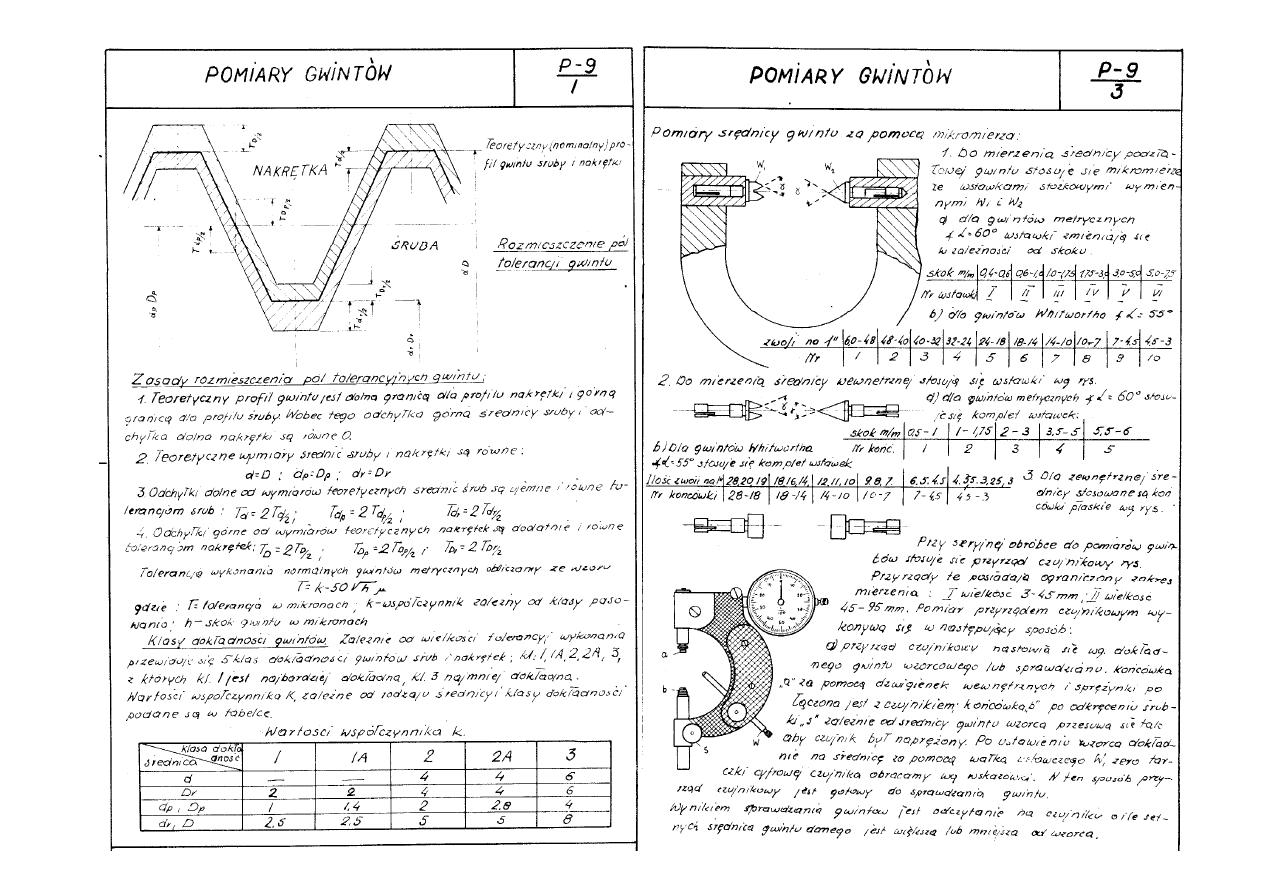 POMIARY GWINTÓW
P-9
1
TD/2
Td/2
NAKRĘTKA
Teoretyczny (nominalny) pro-
fil gwintu śruby i nakrętki
TDp/2
Tdp/2
ŚRUBA
Rozmieszczenie pól
tolerancji gwintu
dp Dp
d D
TDr/2
Tdr/2
dr Dr
Zasady rozmieszczenia pól tolerancyjnych gwintu:
1. Teoretyczny profil gwintu jest dolną granicą dla profilu nakrętki i górną
granicą dla profilu śruby. Wobec tego odchyłka górna średnicy śruby i od-
chyłka dolna nakrętki są równe 0.
2. Teoretyczne wymiary średnic śruby i nakrętki są równe:
d=D ; dp=Dp ; dr=Dr
3. Odchyłki dolne od wymiarów teoretycznych średnic śrub są ujemne i równe to-
lerancjom śrub : Td=2Td/2 ; Tdp=2Tdp/2 ; Tdr=2Tdr/2
4. Odchyłki górne od wymiarów teoretycznych nakrętek są dodatnie i równe
tolerancjom nakrętek: TD=2TD/2 ; TDp=2TDp/2 ; TDr=2TDr/2
Tolerancję wykonania normalnych gwintów metrycznych obliczamy ze wzoru
T= k·50 √h μ
gdzie : T= tolerancja w mikronach ; k-współczynnik zależny od klasy paso-
wania ; h-skok gwintu w mikronach
Klasy dokładności gwintów. Zależnie od wielkości tolerancji wykonania
przewiduje się 5 klas dokładności gwintów śrub i nakrętek ; kl. 1, 1A, 2, 2A, 3,
z których kl. 1 jest najbardziej dokładna, kl. 3 najmniej dokładna.
Wartości współczynnika K, zależne od rodzaju średnicy i klasy dokładności
podane są w tabelce.
Wartości współczynnika K.
klasa dokładność
średnica
1 1A 2 2A 3
d — — 4 4 6
Dr 2 2 4 4 6
dp, Dp 1 1.4 2 2.8 4
dr, D 2.5 2.5 5 5 8
POMIARY GWINTÓW
P-9
3
Pomiary średnicy gwintu za pomocą mikromierza:
1. Do mierzenia średnicy podzia-
łowej gwintu stosuje się mikromierze
ze wstawkami stożkowymi wymien-
nymi W1 i W2
W1
W2
α
α
a) dla gwintów metrycznych
∢ α=60° wstawki zmieniają się
w zależności od skoku.
skok m/m 0,4-0,6 0,6-1,0 1,0-1,75 1,75-3,0 3,0-5,0 5,0-7,5
Nr wstawki I II III IV V VI
b) dla gwintów Whitwortha ∢ α = 55°
zwoji na 1" 60-48 48-40 40-32 32-24 24-18 18-14 14-10 10-7 7-4,5 4,5-3
Nr 1 2 3 4 5 6 7 8 9 10
2. Do mierzenia średnicy wewnętrznej stosują się wstawki wg rys.
a) dla gwintów metrycznych ∢ α = 60° stosu-
je się komplet wstawek:
skok m/m 0,5-1 1-1,75 2-3 3,5-5 5,5-6
Nr końc. 1 2 3 4 5
b) Dla gwintów Whitwortha
∢ α=55° stosuje się komplet wstawek
Ilość zwoi na 1" 28,20,19 18,16,14, 12,11,10 9,8,7. 6, 5, 4,5 4, 3,5, 3,25, 3
Nr końcówki 28-18 18-14 14-10 10-7 7-4,5 4,5-3
3. Dla zewnętrznej śre-
dnicy stosowane są koń
cówki płaskie wg rys.
Przy seryjnej obróbce do pomiarów gwin-
tów stosuje się przyrząd czujnikowy rys.
Przyrządy te posiadają ograniczony zakres
mierzenia : I wielkość 3-45 mm, II wielkość
45-95 mm. Pomiar przyrządem czujnikowym wy-
konywa się w następujący sposób:
a) przyrząd czujnikowy nastawia się wg. dokład-
nego gwintu wzorcowego lub sprawdzianu. Końcówka
„a" za pomocą dźwigienek wewnętrznych i sprężynki po
łączona jest z czujnikiem. końcówka „b" po odkręceniu śrub-
ki „s" zależnie od średnicy gwintu wzorca przesuwa się tak
aby czujnik był naprężony. Po ustawieniu wzorca dokład-
nie na średnicę za pomocą wałka ustawczego W, zero tar-
czki cyfrowej czujnika obracamy wg wskazówki. W ten sposób przy-
rząd czujnikowy jest gotowy do sprawdzania gwintu.
Wynikiem sprawdzania gwintów jest odczytanie na czujniku o ile set-
nych średnica gwintu danego jest większa lub mniejsza od wzorca.
a
b
S
W